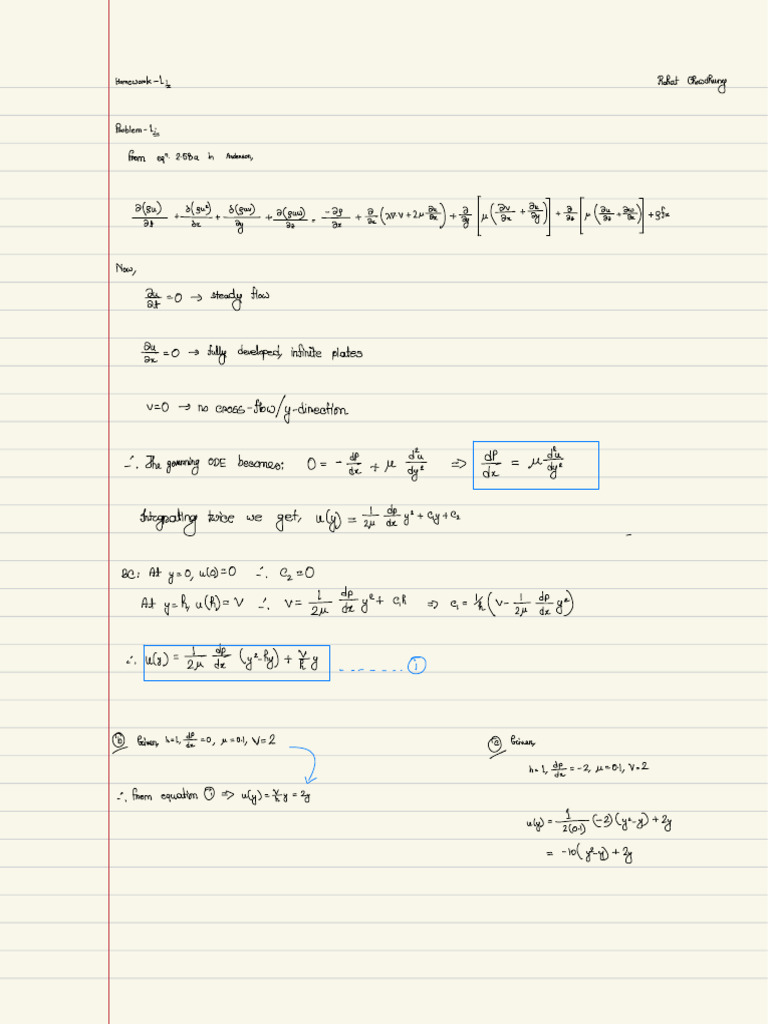 Homework-1
Rahat Chowdhury
Problem-1
From eqⁿ 2.58a in Anderson,
∂(ρu)/∂t + ∂(ρu²)/∂x + ∂(ρuv)/∂y + ∂(ρuw)/∂z = -∂p/∂x + ∂/∂x (λ∇·V + 2μ ∂u/∂x) + ∂/∂y [μ(∂v/∂x + ∂u/∂y)] + ∂/∂z [μ(∂u/∂z + ∂w/∂x)] + ρfx
Now,
∂u/∂t = 0 → steady flow
∂u/∂x = 0 → fully developed, infinite plates
v=0 → no cross-flow/y-direction
∴ The governing ODE becomes: 0 = - dP/dx + μ d²u/dy² ⇒ dP/dx = μ d²u/dy²
Integrating twice we get, u(y) = 1/2μ dp/dx y² + C₁y + C₂
BC: At y=0, u(0)=0 ∴ C₂=0
At y=h, u(h)=V ∴ V = 1/2μ dp/dx y² + C₁h ⇒ C₁ = 1/h (V - 1/2μ dp/dx y²)
∴ u(y) = 1/2μ dp/dx (y²-hy) + V/h y ------- ①
ⓑ Given, h=1, dP/dx = 0, μ=0.1, V=2
∴ From equation ① ⇒ u(y) = V/h y = 2y
ⓐ Given,
h=1, dp/dx = -2, μ=0.1, V=2
u(y) = 1/2(0.1) (-2)(y²-y) + 2y
= -10(y²-y) + 2y